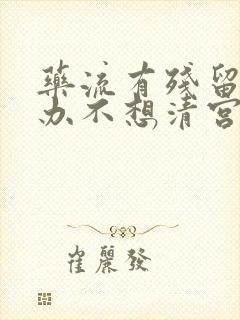 藥流有殘留
办不想清宮
崔麗發